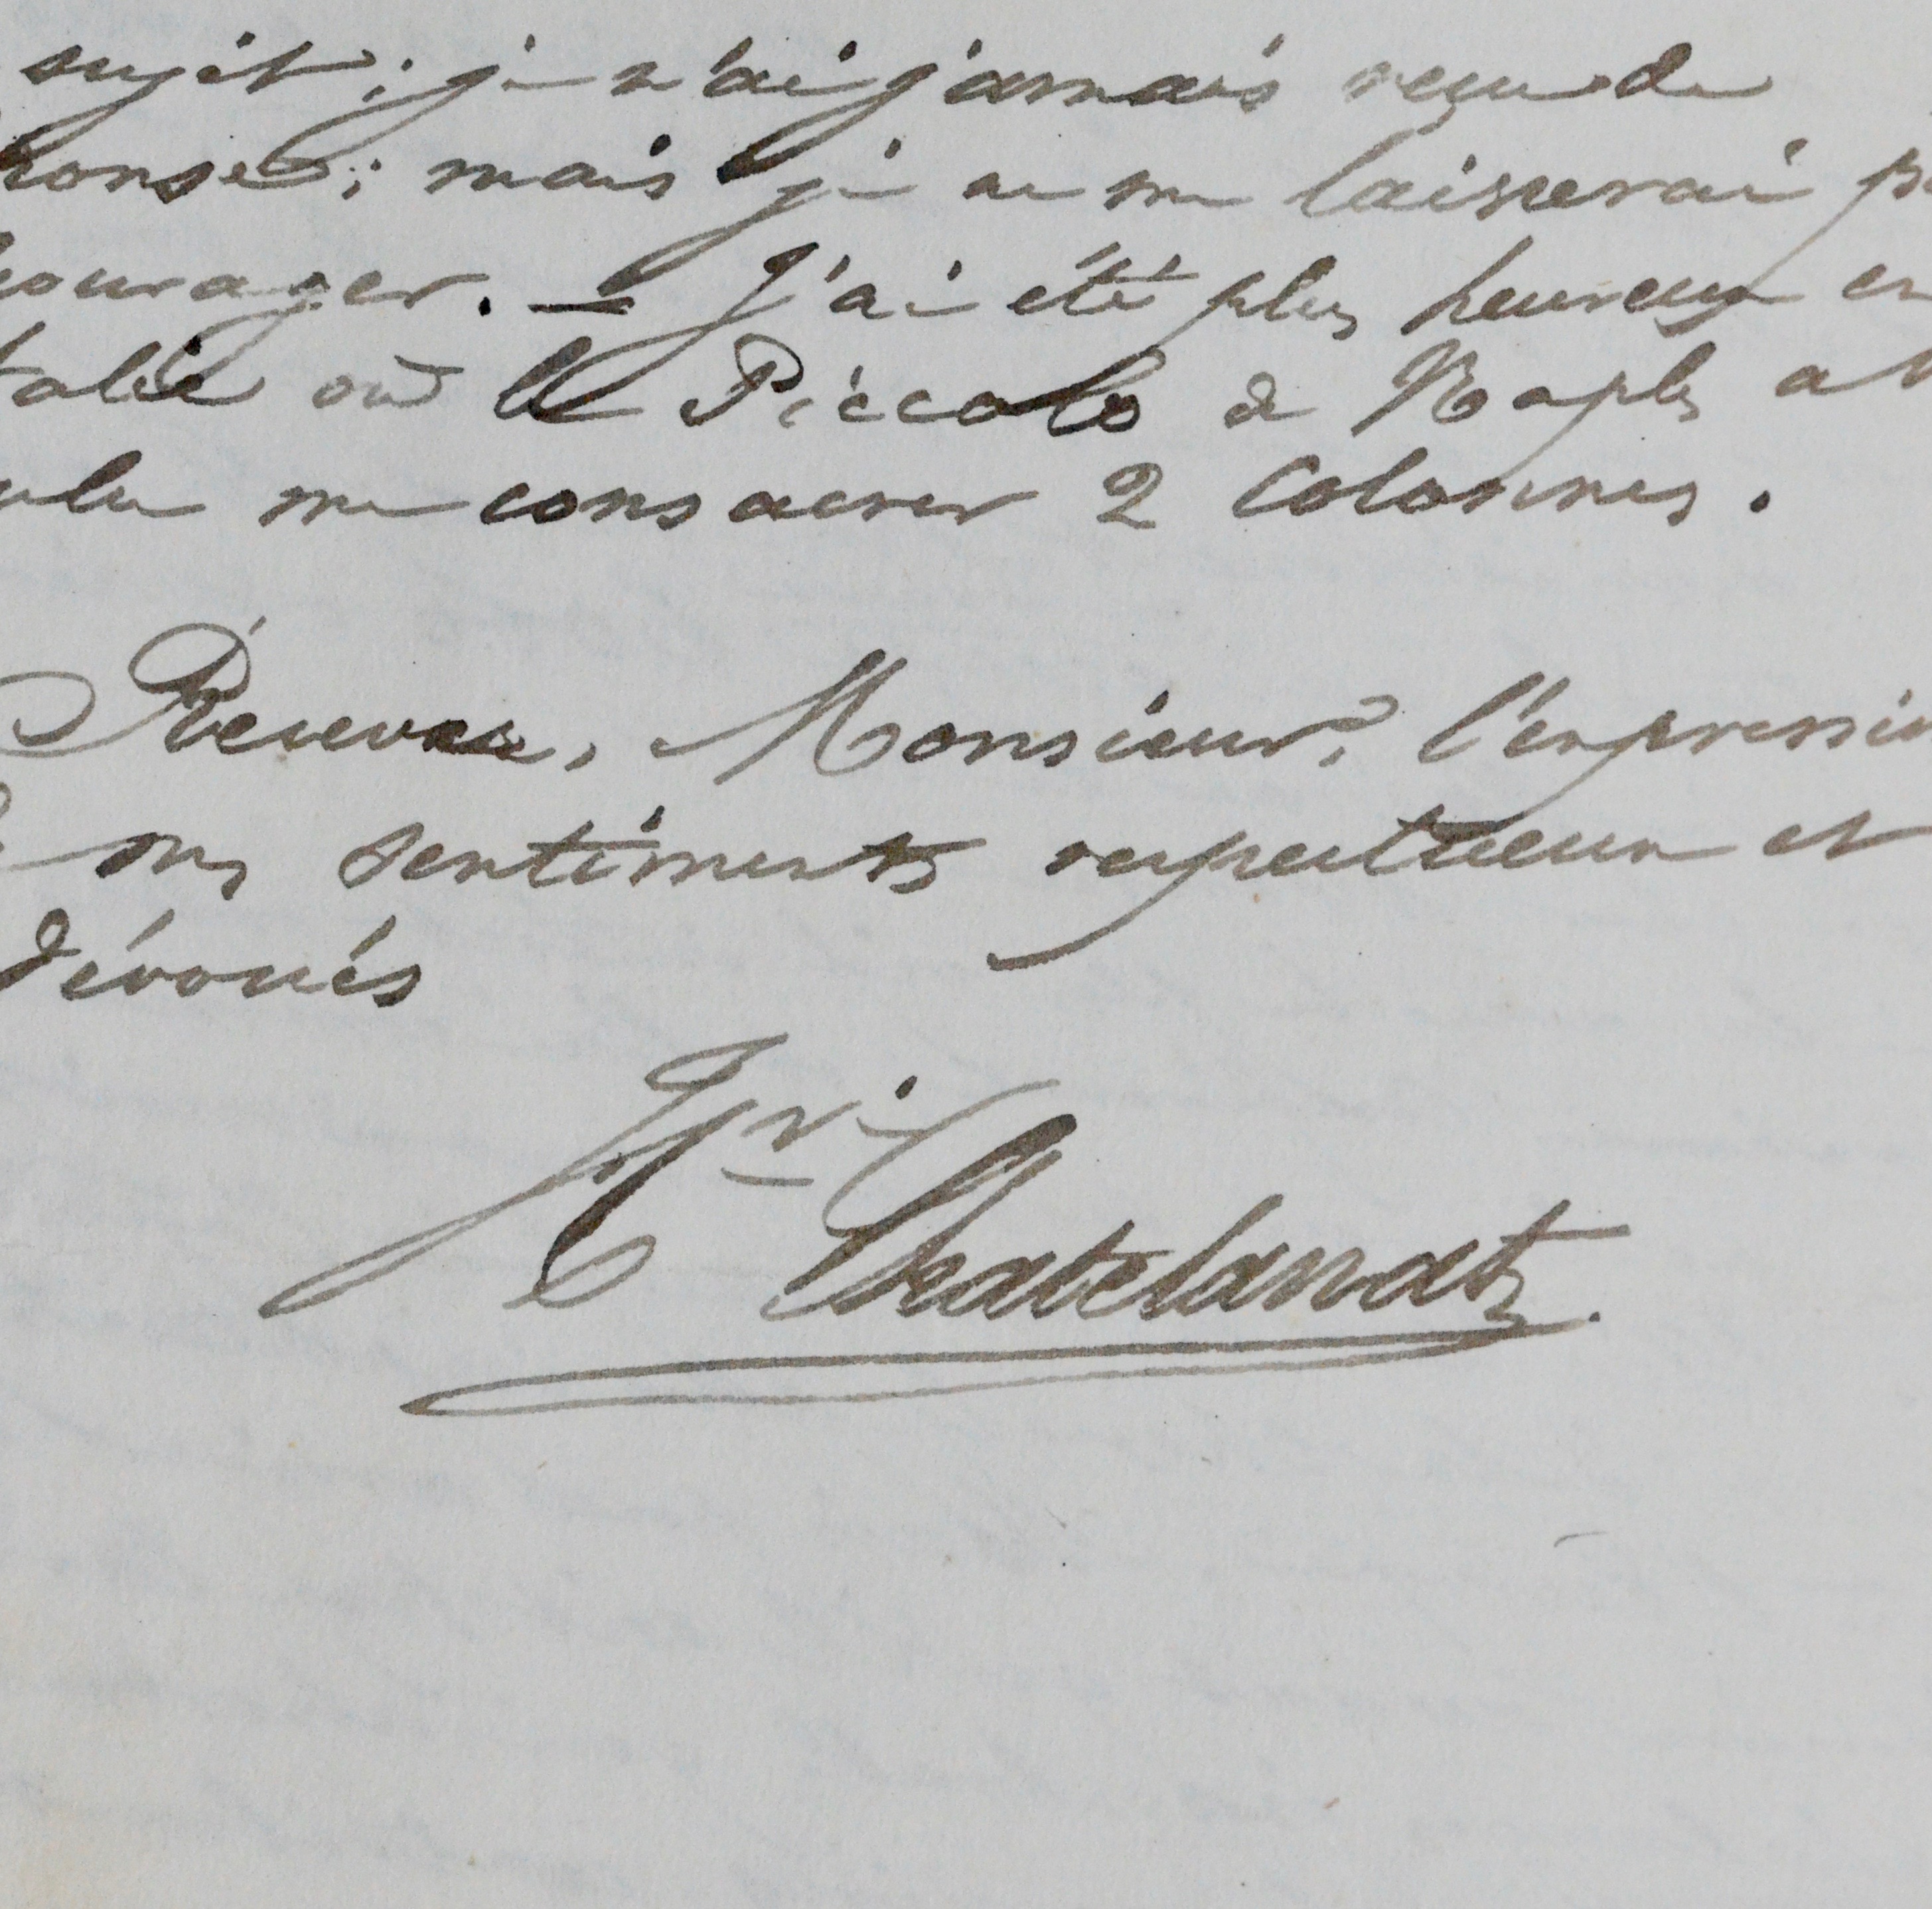 sujet ; je n'ai jamais reçu de
ponse ; mais je ne me laisserai p
courager. — J'ai été plus heureux en
talie où le Piccolo de Naples a
ulu me consacrer 2 colonnes.
Recevez, Monsieur, l'expression
mes sentiments respectueux et
dévoués
Hri Chatelanat